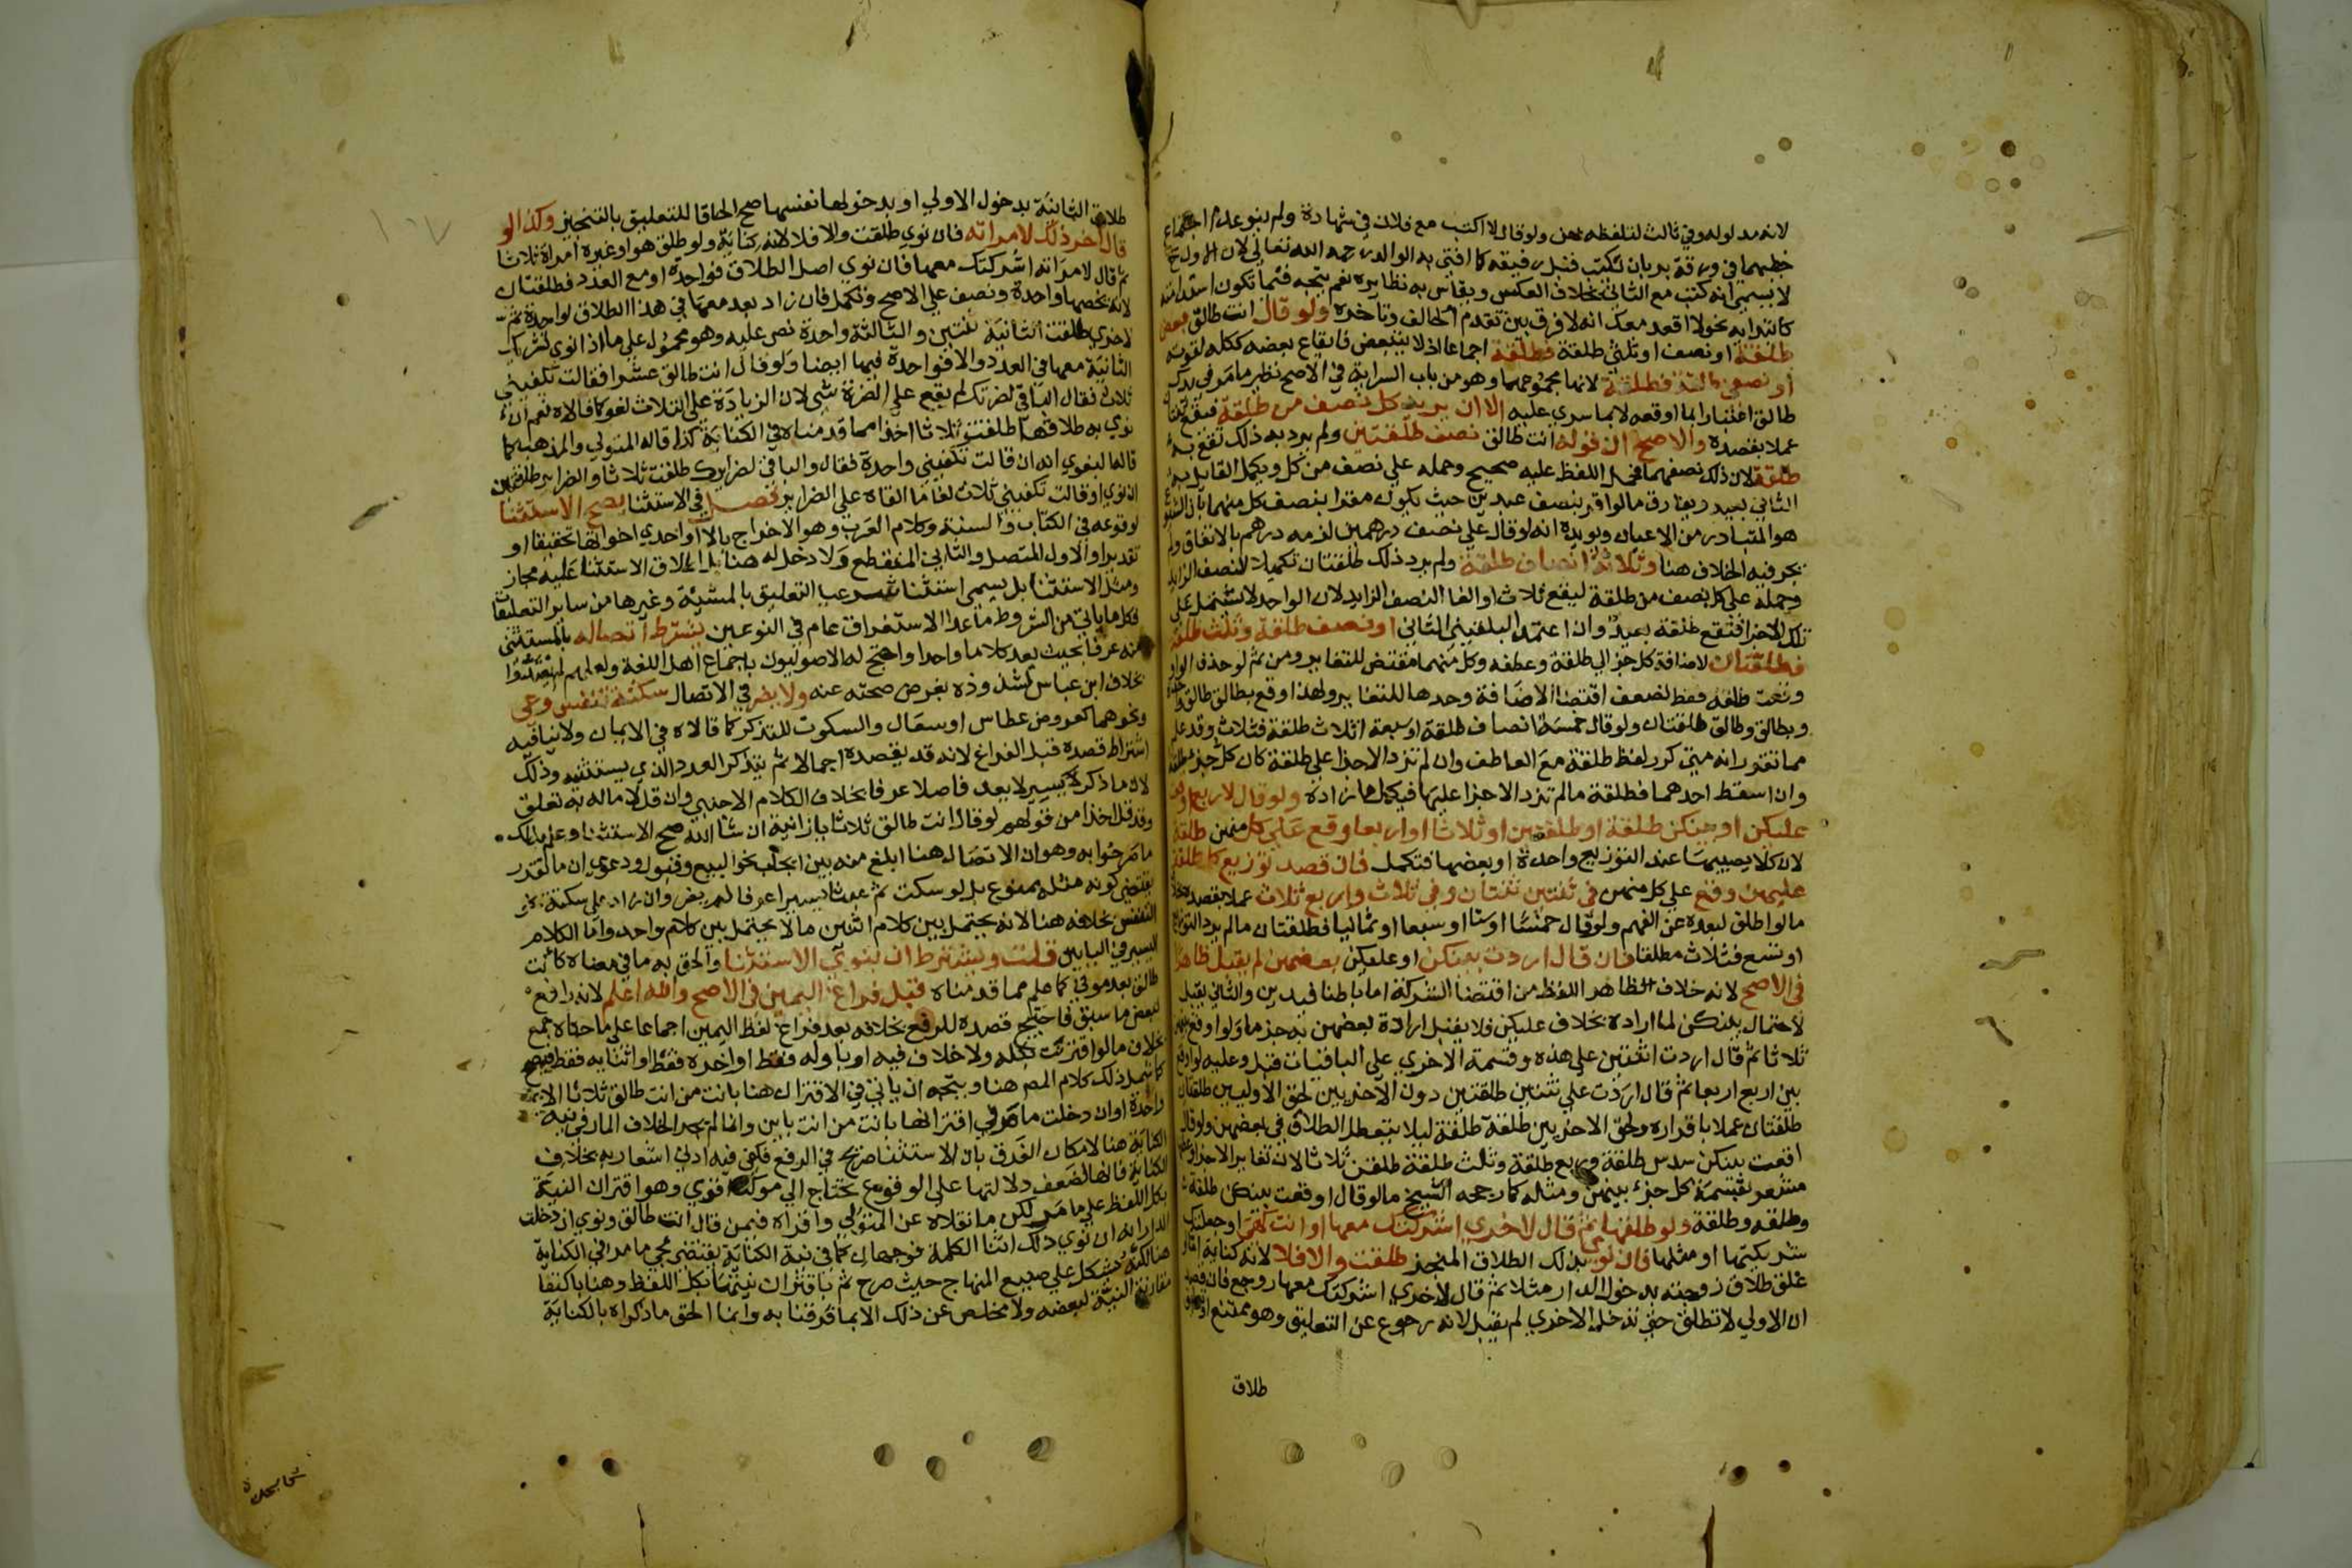 لانه مدلوله وفي ثالث لتلفظه بمن ولو قال لا اكتب مع فلان في شهادة ولم ينو عدم اجتماع
خطيهما في ورقة بر بان تكتب قبل رفيقه كما افتى به الوالد رحمه الله تعالى لان الاول
لا يسمى انه كتب مع الثاني بخلاف العكس ويقاس به نظايره نعم يتجه فيما تكون استدامته
كابتدايه نحو لا اقعد معك انه لا فرق بين تقدم الحالف وتاخره ولو قال انت طالق بعض
طلقة او نصف او ثلثي طلقة فطلقة اجماعا اذ لا يتبعض فايقاع بعضه ككله لقوته
او نصفي طلقة فطلقة لانها مجموعهما وهو من باب السراية في الاصح نظير ما مر في يدك
طالق اعتبارا بما اوقعه لا بما سري عليه الا ان يريد كل نصف من طلقة فيقع ثنتان
عملا بقصده والاصح ان قوله انت طالق نصف طلقتين ولم يرد به ذلك تقع به
طلقة لان ذلك نصفهما فحمل اللفظ عليه صحيح وحمله على نصف من كل ويكمل القايل به
الثاني بعيد ويفارق ما لو اقر بنصف عبدين حيث يكون مقرا بنصف كل منهما بان الشيوع
هو المتبادر من الاعيان ويويده انه لو قال علي نصف درهمين لزمه درهم بالاتفاق ولم
يجر فيه الخلاف هنا وثلاثة انصاف طلقة ولم يرد ذلك طلقتان تكميلا للنصف الزايد
وحمله على كل نصف من طلقة ليقع ثلاث او الغا النصف الزايد لان الواحد لا يشتمل على
تلك الاجزا فتقع طلقة بعيد وان اعتمد البلقيني الثاني او نصف طلقة وثلث طلقة
فطلقتان لاضافة كل جزء الى طلقة وعطفه وكل منهما مقتض للتغاير ومن ثم لو حذف الواو
وقعت طلقة فقط لضعف اقتضا الاضافة وحدها للتغاير ولهذا وقع بطالق طالق واحدة
وبطالق وطالق طلقتان ولو قال خمسة انصاف طلقة او سبعة اثلاث طلقة فثلاث وقد علم
مما تقرر انه متى كرر لفظ طلقة مع العاطف وان لم تزد الاجزا على طلقة كان كل جزء طلقة
وان اسقط احدهما فطلقة ما لم تزد الاجزا عليها فيكمل ما زاد ولو قال لاربع اوقعت
عليكن او بينكن طلقة او طلقتين او ثلاثا او اربعا وقع على كل منهن طلقة
لان كلا يصيبها عند التوزيع واحدة او بعضها فتكمل فان قصد توزيع كل طلقة
عليهن وقع على كل منهن في ثنتين ثنتان وفي ثلاث واربع ثلاث عملا بقصده بخلاف
ما لو اطلق لبعده عن الفهم ولو قال خمسا او ستا او سبعا او ثمانيا فطلقتان ما لم يرد التوزيع
او تسع فثلاث مطلقا فان قال اردت ببينكن او عليكن بعضهن لم يقبل ظاهرا
في الاصح لانه خلاف الظاهر اللفظ من اقتضا الشركة اما باطنا فيدين والثاني يقبل
لاحتمال بينكن لما اراده بخلاف عليكن فلا يقبل ارادة بعضهن به جزما ولو اوقع بينهن
ثلاثا ثم قال اردت اثنتين على هذه وقسمة الاخرى على الباقيات قبل وعليه لو اوقع
بين اربع اربعا ثم قال اردت على ثنتين طلقتين دون الاخريين لحق الاوليين طلقتان
طلقتان عملا باقراره ولحق الاخريين طلقة طلقة ليلا يتعطل الطلاق في بعضهن ولو قال
اوقعت بينكن سدس طلقة وربع طلقة وثلث طلقة طلقن ثلاثا لان تغاير الاجزا وعطفها
مشعر بقسمة كل جزء بينهن ومثله كما رجحه الشيخ ما لو قال اوقعت بينكن طلقة
وطلقه وطلقة ولو طلقها ثم قال لاخرى اشركتك معها او انت كهي او جعلتك
شريكتها او مثلها فان نوى بذلك الطلاق المنجز طلقت والا فلا لانه كناية اما لو
علق طلاق زوجته بدخول الدار مثلا ثم قال لاخرى اشركتك معها روجع فان قصد
ان الاولى لا تطلق حتى تدخل الاخرى لم يقبل لانه رجوع عن التعليق وهو ممتنع او تعليق
طلاق
طلاق الثانية بدخول الاولى او بدخولها نفسها صح الحاقا للتعليق بالتنجيز وكذا لو
قال اخر ذلك لامراته فان نوى طلقت والا فلا لانه كناية ولو طلق هو او غيره امراة ثلاثا
ثم قال لامراته اشركتك معها فان نوى اصل الطلاق فواحدة او مع العدد فطلقتان
لانه يخصها واحدة ونصف على الاصح وتكمل فان زاد بعد معها في هذا الطلاق لواحدة ثم
لاخرى طلقت الثانية ثنتين والثالثة واحدة نص عليه وهو محمول على ما اذا نوى تشريك
الثانية معها في العدد والا فواحدة فيها ايضا ولو قال انت طالق عشرا فقالت تكفيني
ثلاث فقال الباقي لضرتك لم يقع على الضرة شي لان الزيادة على الثلاث لغو كما قالاه نعم ان
نوى به طلاقها طلقت ثلاثا اخذا مما قدمناه في الكناية كذا قاله المتولي والمذهب كما
قاله البغوي انه ان قالت تكفيني واحدة فقال والباقي لضرايرك طلقت ثلاثا والضراير طلقتين
ان نوى او قالت تكفيني ثلاث لغا ما القاه على الضراير فصل في الاستثنا يصح الاستثنا
لوقوعه في الكتاب والسنة وكلام العرب وهو الاخراج بالا او احدى اخواتها تحقيقا او
تقديرا والاول المتصل والثاني المنقطع ولا دخل له هنا بل اطلاق الاستثنا عليه مجاز
ومثل الاستثنا بل يسمى استثنا شرعيا التعليق بالمشيئة وغيرها من ساير التعليقات
فكل ما ياتي من الشروط ما عدا الاستغراق عام في النوعين بشرط اتصاله بالمستثنى
منه عرفا بحيث يعد كلاما واحدا واحتج له الاصوليون باجماع اهل اللغة ولعلهم لم يعتدوا
بخلاف ابن عباس لشذوذه بفرض صحته عنه ولا يضر في الاتصال سكتة تنفس وعي
ونحوهما كعروض عطاس او سعال والسكوت للتذكر كما قالاه في الايمان ولا ينافيه
اشتراط قصده قبل الفراغ لانه قد يقصده اجمالا ثم يتذكر العدد الذي يستثنيه وذلك
لان ما ذكر يسير لا يعد فاصلا عرفا بخلاف الكلام الاجنبي وان قل لا ما له به تعلق
وقد قل اخذا من قولهم لو قال انت طالق ثلاثا يا زانية ان شا الله صح الاستثنا وعلم بذلك
ما صرحوا به وهو ان الاتصال هنا ابلغ منه بين ايجاب نحو البيع وقبول ودعوى ان ما تقرر
يقتضي كونه مثله ممنوع بل لو سكت ثم عبثا يسيرا عرفا لم يضر وان زاد على سكتة نحو
التنفس بخلافه هنا لانه يحتمل بين كلام اثنين ما لا يحتمل بين كلام واحد واما الكلام
اليسير في البابين قلت ويشترط ان ينوي الاستثنا والحق به ما في معناه كانت
طالق بعد موتي كما علم مما قدمناه قبل فراغ اليمين في الاصح والله اعلم لانه رافع
لبعض ما سبق فاحتيج قصده للرفع بخلافه بعد فراغ لفظ اليمين اجماعا على ما حكاه جمع
بخلاف ما لو اقترنت بكله ولا خلاف فيه او باوله فقط او اخره فقط او اثنايه فقط فيصح
كما شمل ذلك كلام المص هنا ويتجه ان ياتي في الاقتران هنا بانت من انت طالق ثلاثا الا
واحدة او ان دخلت ما مر في اقترانها بانت من انت باين وانما لم يجر الخلاف المار في نية
الكناية هنا لامكان الفرق بان الاستثنا صريح في الرفع فكفى فيه ادنى اشعار به بخلاف
الكناية فانها لضعف دلالتها على الوقوع تحتاج الى موكد اقوى وهو اقتران النية
بكل اللفظ على ما مر لكن ما نقلاه عن المتولي واقراه فيمن قال انت طالق ونوى ان دخلت
الدار انه ان نوى ذلك اثنا الكلمة فوجهان كما في نية الكناية يقتضي مجي ما مر في الكناية
هنا لكنه مشكل على صنيع المنهاج حيث صرح ثم باقتران نيتها بكل اللفظ وهنا باكتفا
مقارنة النية لبعضه ولا مخلص عن ذلك الا بما فرقنا به وانما الحق ما ذكراه بالكناية
١٥٧